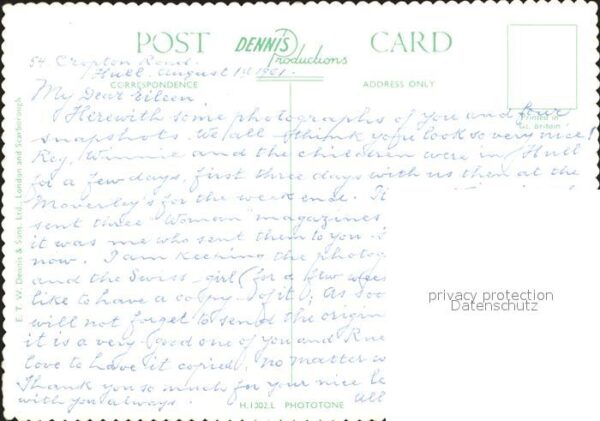 POST DENNIS Productions CARD
54 Cropton Road.
Hull. August 1st 1961.
CORRESPONDENCE ADDRESS ONLY
My Dear Eileen,
Herewith some photographs of you and four
snapshots. We all think you look so very nice!
Printed in Gt. Britain
Reg, Winnie and the children were in Hull
for a few days, first three days with us then at the
Moverley's for the week end. It
sent three "Woman" magazines
it was me who sent them to you
now. I am keeping the photog
and the Swiss girl (for a few wee
like to have a copy of it). As soo
will not forget to send the origin
it is a very good one of you and
love to have it copied, no matter
Thank you so much for your nice le
with you always. All
H.1302.L PHOTOTONE
E. T. W. Dennis & Sons, Ltd., London and Scarborough
privacy protection
Datenschutz